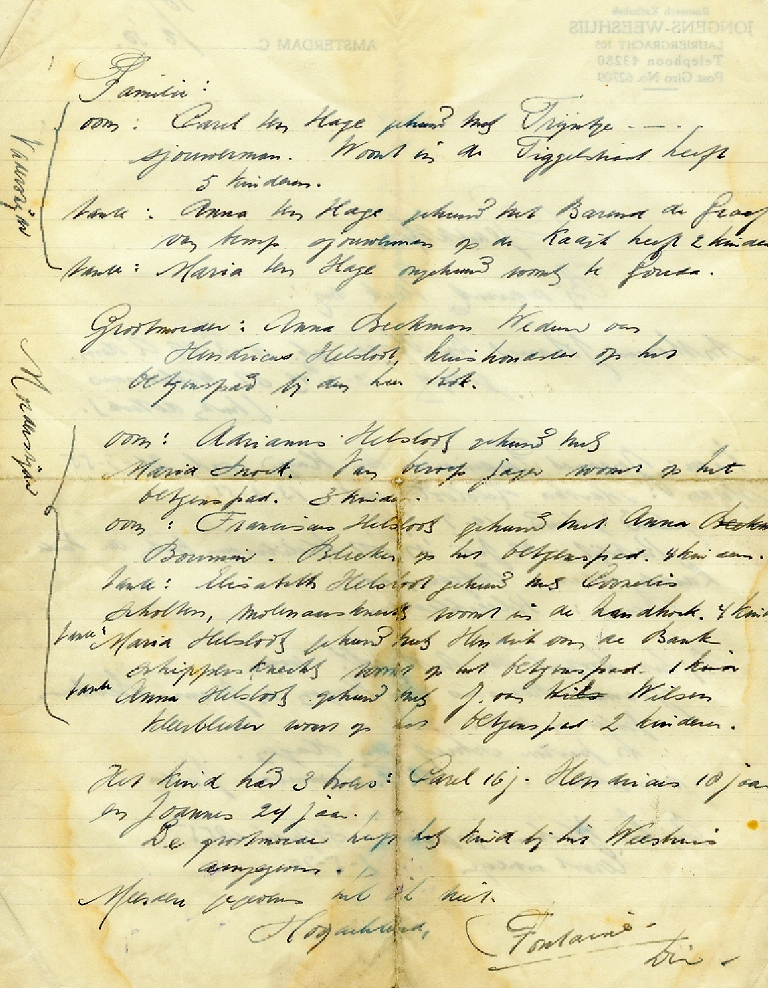 Familie:
Vaderszijde
oom: Carel ten Hage gehuwd met Trijntje — — .
sjouwerman. Woont in de Tiggelstraat heeft
5 kinderen.
tante: Anna ten Hage gehuwd met Barend de Graaf
van beroep sjouwerman op de Kaadijk heeft 2 kinderen
tante: Maria ten Hage ongehuwd woont te Gouda.
Grootmoeder: Anna Beekman Weduwe van
Hendricus Helsloot, huishoudster op het
betgenspad bij den heer Kok.
Moederszijde
oom: Adrianus Helsloot gehuwd met
Maria Snoek. Van beroep jager woont op het
betgenspad. 3 kinder.
oom: Franciscus Helsloot gehuwd met Anna
Bouman. Bleeker op het betgenspad. 4 kinderen.
tante: Elisabeth Helsloot gehuwd met Cornelis
Scholten, molenaarsknecht woont in de handhoek. 4 kind
tante: Maria Helsloot gehuwd met Hendrik van de Bank
schippersknecht woont op het betgenspad. 1 kind
tante Anna Helsloot gehuwd met J. van Wilsen
kleerbleker woont op het betgenspad 2 kinderen.
Het kind had 3 broers: Carel 16 j. Hendricus 18 jaar
en Joannes 24 jaar.
De grootmoeder heeft het kind bij het Weeshuis
aangegeven.
Meerdere gegevens heb ik niet.
Hoogachtend,
Fontaine
Dir.
Roomsch Katholiek
JONGENS-WEESHUIS
LAURIERGRACHT 103
Telephoon 43280
Post Giro No. 62709
AMSTERDAM C